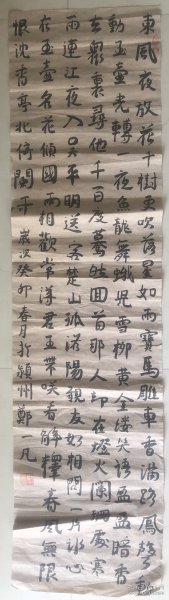 東風夜放花千樹更吹落星如雨寶馬雕車香滿路鳳簫聲
動玉壺光轉一夜魚龍舞蛾兒雪柳黃金縷笑語盈盈暗香
去衆裏尋他千百度驀然回首那人卻在燈火闌珊處寒
雨連江夜入吳平明送客楚山孤洛陽親友如相問一片冰心
在玉壺名花傾國兩相歡常得君王帶笑看解釋春風無限
恨沈香亭北倚闌干 歲次癸卯春月於潁州鄭一凡